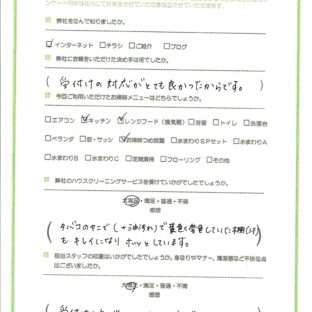 ンケート用紙は外にてお名を含せていただき役立させていただきます。
弊社をなんで知りましたか。
☑インターネット □チラシ □ご紹介 □ブログ
弊社に依頼をいただけた決め手は何でしたか。
(受付けの対応がとても良かったからです。)
今回ご利用いただけたお掃除メニューはどちらでしょうか。
□エアコン ☑キッチン ☑レンジフード(換気扇) □浴室 □トイレ □洗面台
□ベランダ □窓・サッシ ☑お掃除つめ放題 □水まわりSPセット □水まわりA
□水まわりB □水まわりC □定期清掃 □フローリング □その他
弊社のハウスクリーニングサービスを受けていかがでしたでしょうか。
大満足・満足・普通・不満
感想
(タバコのヤニで(+油汚れ)で黄色く変色していた棚
もキレイになりホッとしています。)
担当スタッフの印象はいかがでしたでしょうか。身なりやマナー、清潔感など不快な点
はございましたか。
大満足・満足・普通・不満
感想